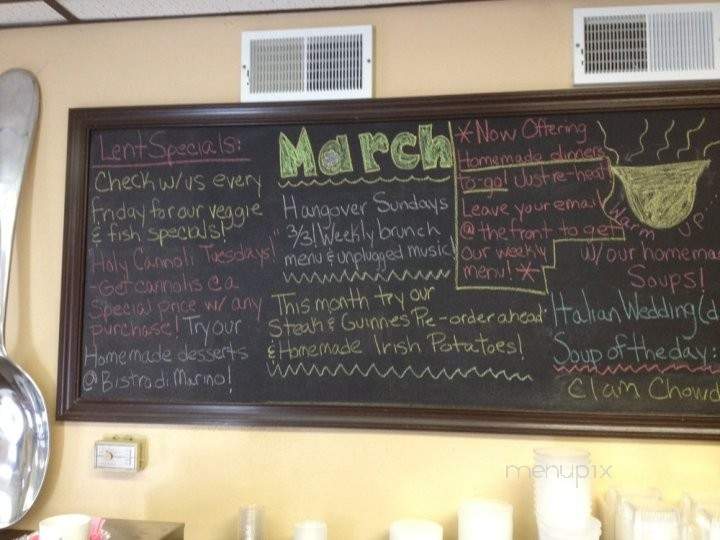 Lent Specials:
Check w/us every
Friday for our veggie
& fish specials!
"Holy Cannoli Tuesdays!"
-Get cannolis @ a
special price w/ any
purchase! Try our
Homemade desserts
@ Bistro di Marino!
March
Hangover Sundays
3/3! Weekly brunch
menu & unplugged music!
This month try our
Steak & Guinnes Pie - order ahead
& Homemade Irish Potatoes!
*Now Offering
Homemade dinners
to-go! Just re-heat!
Leave your email
@ the front to get
our weekly
menu! *
Warm up
w/our homema
Soups!
Italian Wedding (d
Soup of the day:
Clam Chowd
menupix